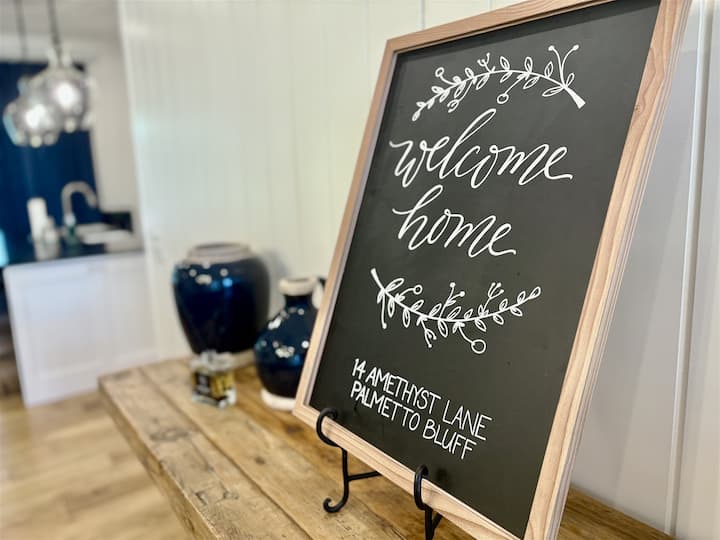 welcome
home
14 AMETHYST LANE
PALMETTO BLUFF